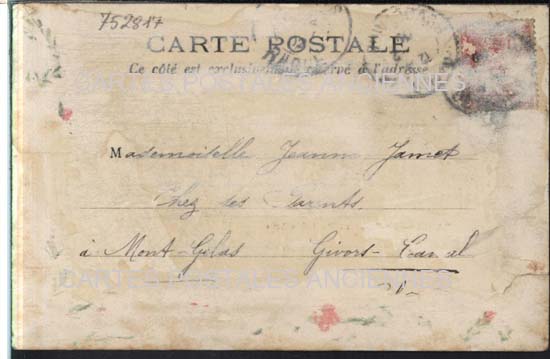 752817
CARTE POSTALE
Ce côté est exclusivement réservé à l'adresse
CARTES POSTALES ANCIENNES
Mademoiselle Jeanne Jamet
Chez ses Parents
à Mont-Gelas Givors-Canal
CARTES POSTALES ANCIENNES